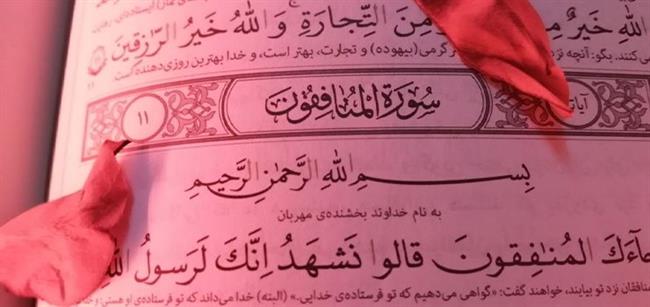 الله خَيرٌ مِنَ التِّجارَةِ وَ اللهُ خَيرُ الرّٰزِقينَ
می‌کنند. بگو: آنچه نزد گرمی (بیهوده) و تجارت، بهتر است، و خدا بهترین روزی‌دهنده است.
۱۱ سُورَةُ المُنَافِقُون
بِسمِ اللهِ الرَّحمٰنِ الرَّحیمِ
به نام خداوند بخشنده‌ی مهربان
جآءَكَ المُنٰفِقونَ قالوا نَشهَدُ اِنَّكَ لَرَسولُ اللهِ
منافقان نزد تو بیایند، خواهند گفت: «گواهی می‌دهیم که تو فرستاده‌ی خدایی.» (البته) خدا می‌داند که تو فرستاده‌ی او هستی؛